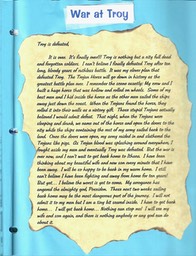 War at Troy
Troy is defeated,
It is over. It's finally over!!! Troy is nothing but a city full of dead
and forgotten soldiers. I can't believe I finally defeated Troy after ten
long, bloody years of ruthless battle. It was my clever plan that
defeated Troy. The Trojan Horse will go down in history as the
greatest battle plan ever. I remember the scene exactly. My crew and I
built a huge horse that was hollow and rolled on wheels. Some of my
best men and I hid inside the horse as the other men sailed the ships
away just above the coast. When the Trojans found the horse, they
rolled it into their walls as a victory gift. Those stupid Trojans actually
believed I would admit defeat. That night, when the Trojans were
sleeping and drunk, we came out of the horse and open the doors to the
city while the ships containing the rest of my army sailed back to the
land. Once the doors were open, my army raided in and slaughtered the
Trojans like pigs. As Trojan blood was splashing around everywhere, I
fought aside my men and eventually Troy was defeated. But the war is
over now, and I can't wait to get back home to Ithaca. I have been
thinking about my beautiful wife and son every minute that I have
been away. I will be so happy to be back in my warm home. I still
can't believe I have been fighting and away from home for ten years!
But yet... I believe the worst is yet to come. My arrogance has
angered the almighty god, Poseidon. These next two weeks sailing
back home may be the most dangerous part of the journey. I will not
admit it to my men but I am a tiny bit scared inside. I have to get back
home... I will get back home... Nothing can stop me! I will see my
wife and son again, and there is nothing anybody or any god can do
about it.